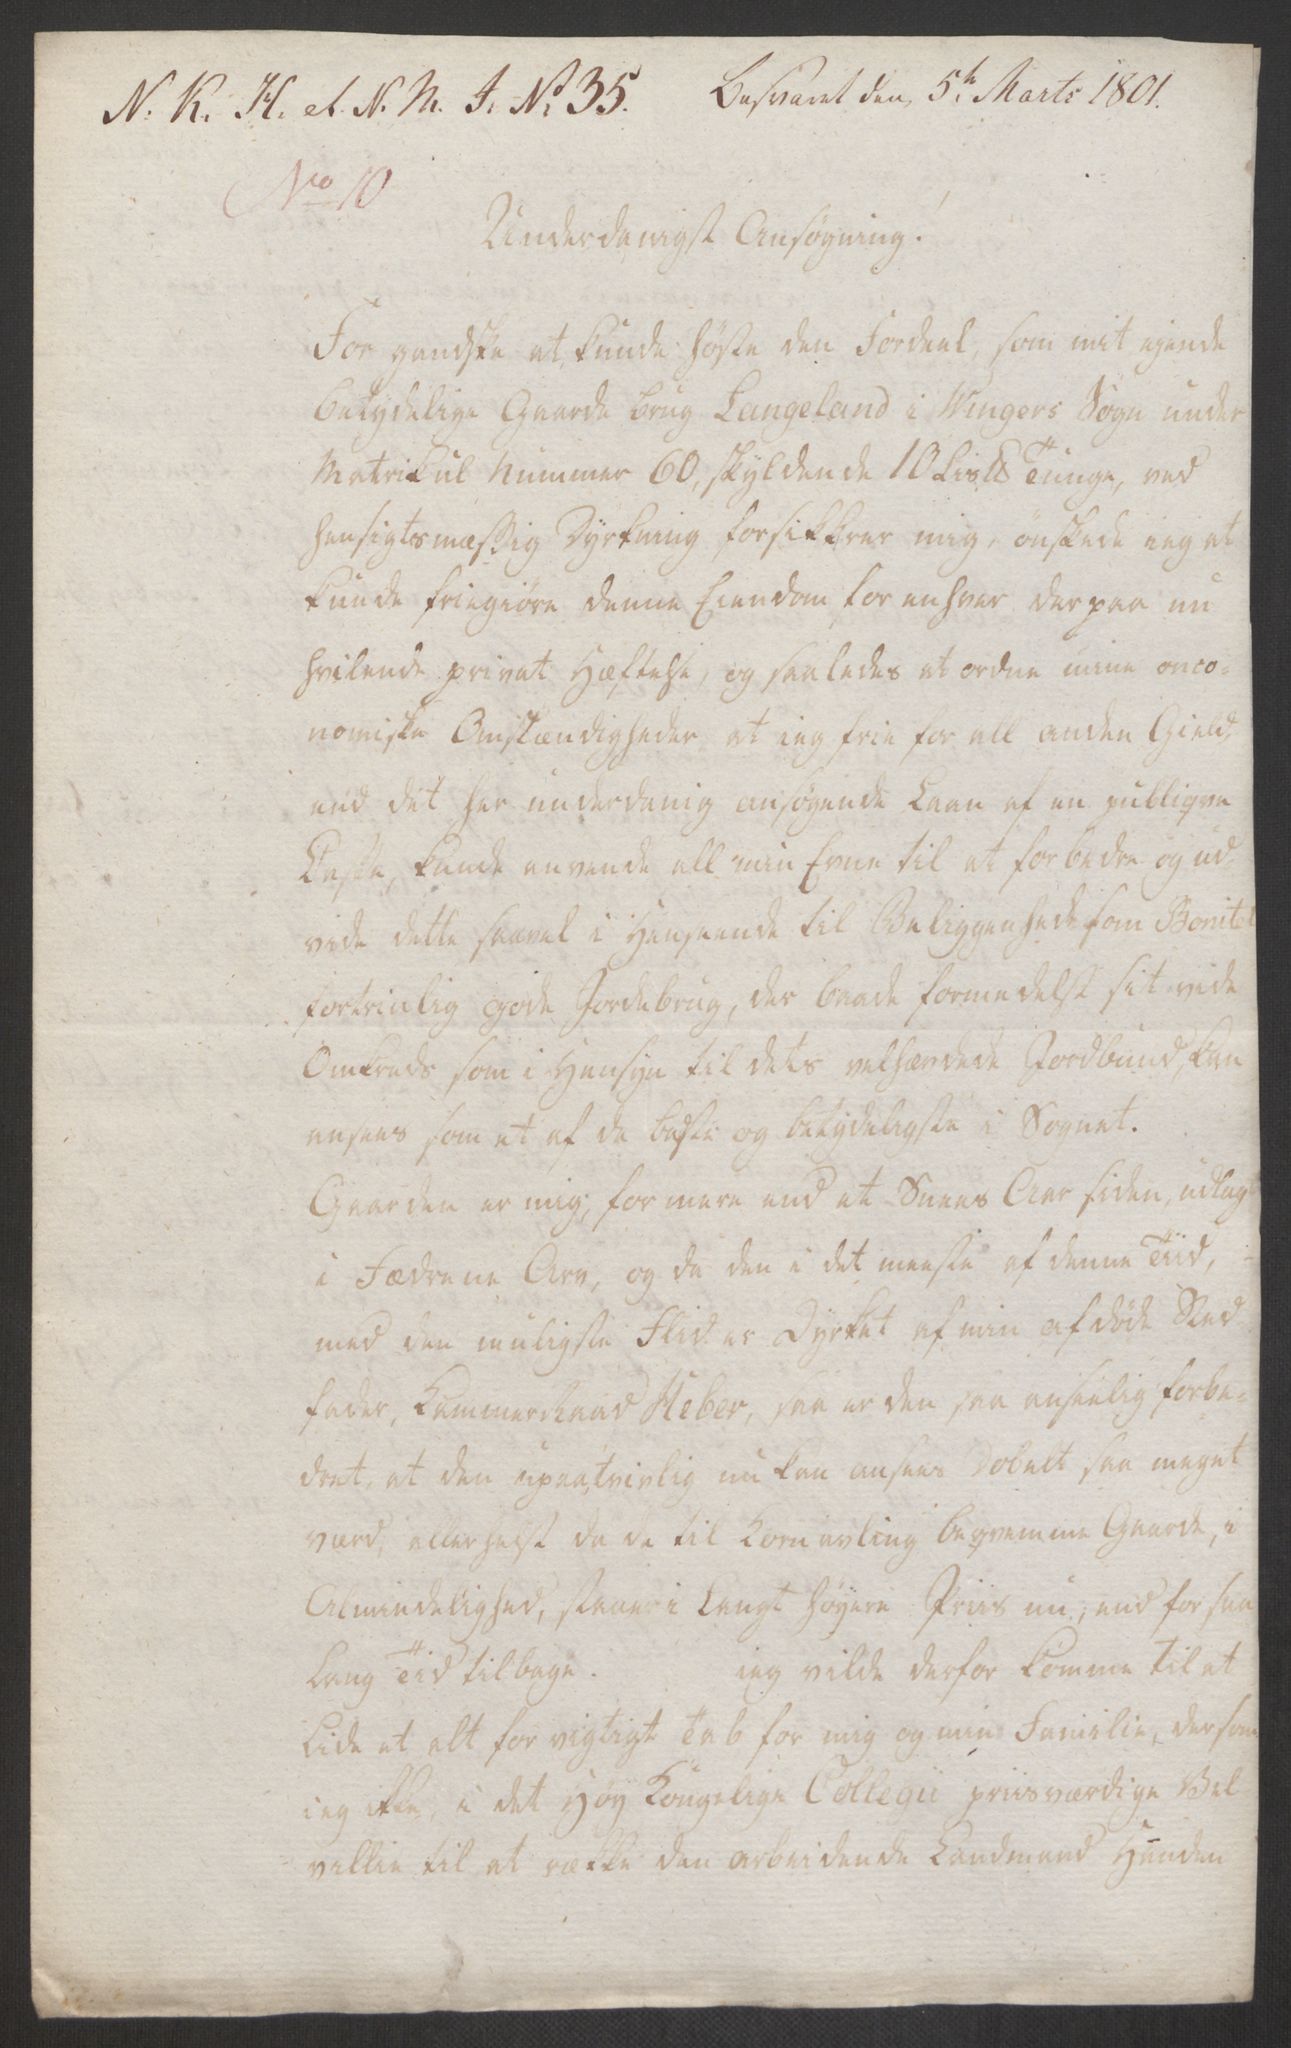 N. K. H. et N. M. J. No 35. Besvaret den 5te Marts 1801.
No 10
Underdanigst Ansøgning!
For gandske at kunde høste den Fordeel, som mit ejende
betydelige Gaarde brug Langeland i Wingers Sogn under
Matrikul Nummer 60, skyldende 10 Lis℔ Tunge, ved
hensigtsmæssig Dyrkning forsikkrer mig, ønskede ieg at
kunde friegiøre denne Eiendom for enhver derpaa nu
hvilende privat Hæftelse, og saaledes at ordne mine oeco-
nomiske Omstændigheder at ieg frie for all anden Gield,
end det her underdanig ansøgende Laan af en publiqve
Casse, kunde anvende all min Evne til at forbedre og ud-
vide dette saavel i Henseende til Beliggenhed som Bonitet
fortrinlig gode Jordebrug, der baade formedelst sit vide
Omkreds som i Hensyn til dets velhævdede Jordbund, kan
ansees som et af de beste og betydeligste i Sognet.
Gaarden er mig, for mere end et Snees Aar siden, udlagt
i Fædrene Arv, og da den i det meeste af denne Tiid,
med den muligste Flid er Dyrket af min afdøde Sted
fader, Kammerraad Heber, saa er den saa anseelig forbe-
dret, at den upaatvivlig nu kan ansees dobelt saa meget
værd, allerhelst da de til Kornavling beqvemme Gaarde, i
Almindelighed, staaer i langt høyere Priis nu, end for saa
lang Tid tilbage. ieg vilde derfor komme til at
Lide et alt for vigtigt Tab for mig og min Familie, dersom
ieg ikke, i det Høy Kongelige Collegii priisværdige Vel-
villie til at række den arbeidende Landmand Haanden